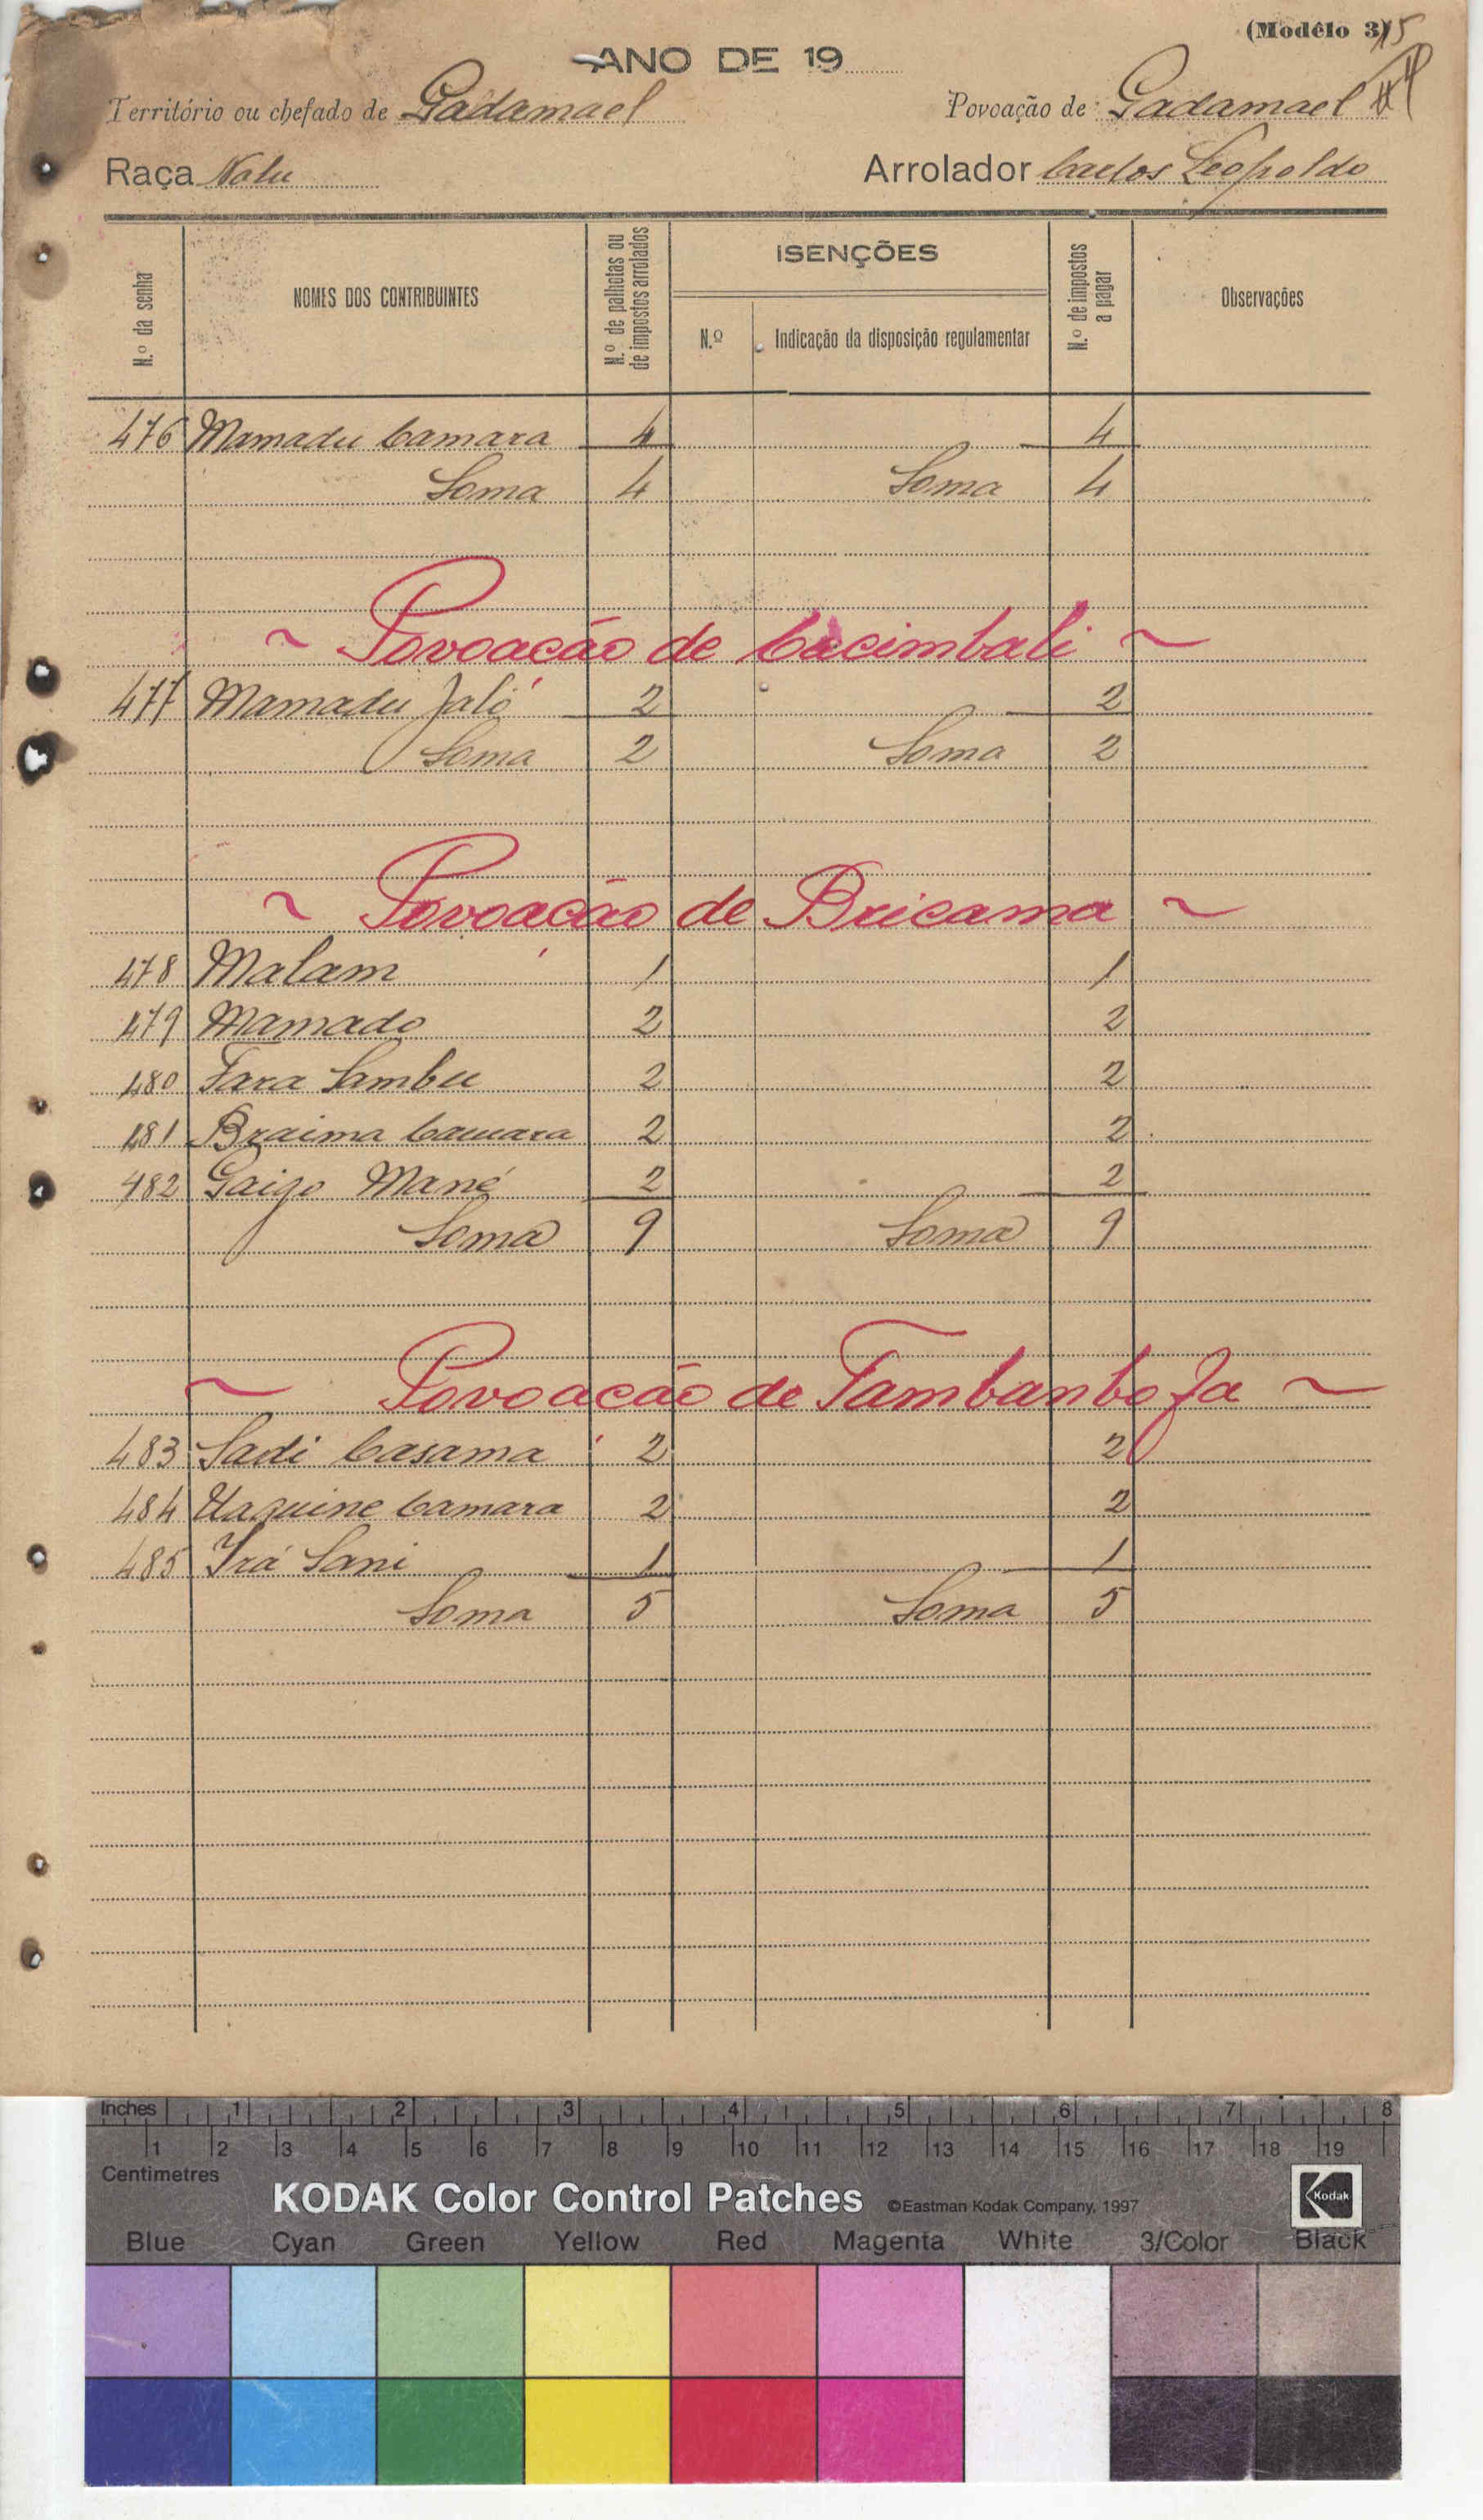 (Modêlo 3) 15
ANO DE 19
Território ou chefado de Gadamael Povoação de Gadamael
Raça Nalu Arrolador Carlos Leopoldo
N.º da senha NOMES DOS CONTRIBUINTES N.º de palhotas ou de impostos arrolados ISENÇÕES N.º Indicação da disposição regulamentar N.º de impostos a pagar Observações
476 Mamadu Camara 4 4
Soma 4 Soma 4
~ Povoação de Cacimbali ~
477 Mamadu Jaló 2 2
Soma 2 Soma 2
~ Povoação de Bricama ~
478 Malam 1 1
479 Mamado 2 2
480 Fara Sambu 2 2
481 Braima Camara 2 2
482 Gaigo Mané 2 2
Soma 9 Soma 9
~ Povoação de Tambanbofa ~
483 Sadi Casama 2 2
484 Camara 2 2
485 Irá Sani 1 1
Soma 5 Soma 5
Inches 1 2 3 4 5 6 7 8
1 2 3 4 5 6 7 8 9 10 11 12 13 14 15 16 17 18 19
Centimetres
KODAK Color Control Patches ©Eastman Kodak Company, 1997 Kodak
Blue Cyan Green Yellow Red Magenta White 3/Color Black